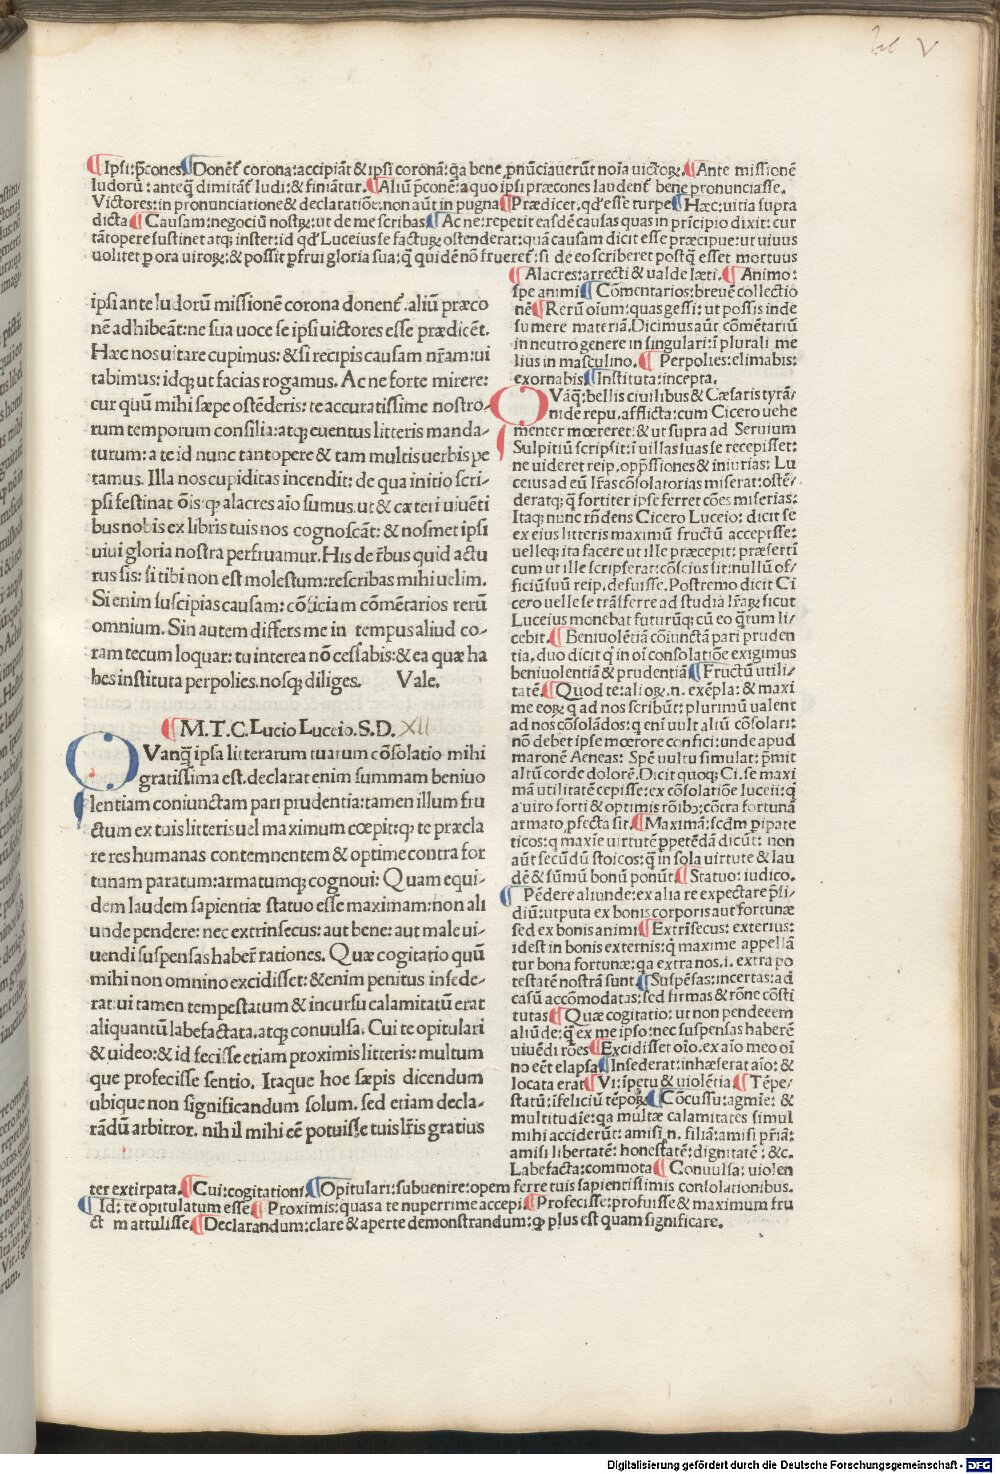 ¶Ipsi:p̃cones¶Donẽt᷑ corona:accipiãt & ipsi coronã:q̃a bene ꝓnũciauerũt noĩa uictoꝝ.¶Ante missionẽ
ludorũ:anteq̃ dimitãt᷑ ludi:& finiãtur.¶Aliũ p̃conẽ:a quo ipsi præcones laudent᷑ bene pronunciasse.
Victores:in pronunciatione & declaratiõe:non aũt in pugna¶Prædicer,qd᷑ esse turpe¶Hæc:uitia supra
dicta¶Causam:negociũ nostꝝ:ut de me scribas¶Ac ne:repetit easdẽ causas quas in prĩcipio dixit:cur
tãtopere sustinet atqꝫ instet:id qd᷑ Luceius se facturꝝ ostenderat:quã causam dicit esse præcipue:ut uiuus
uolitet ꝑ ora uiroꝝ:& possit ꝑfrui gloria sua:q̃ quidẽ nõ frueret᷑:si de eo scriberet postq̃ esset mortuus
ipsi ante ludorũ missionẽ corona donent᷑.aliũ præco
nẽ adhibeãt:ne sua uoce se ipsi uictores esse prædicẽt.
Hæc nos uitare cupimus:& si recipis causam nr̃am:ui
tabimus:idqꝫ ut facias rogamus. Ac ne forte mirere:
cur quũ mihi sæpe ostẽderis:te accuratissime nostro-
rum temporum consilia:atqꝫ euentus litteris manda-
turum:a te id nunc tantopere & tam multis uerbis pe
tamus. Illa nos cupiditas incendit:de qua initio scri-
psi festinat᷑ õis:ꝙ alacres aĩo sumus.ut & cæteri uiuẽti
bus nobis ex libris tuis nos cognoscãt:& nosmet ipsi
uiui gloria nostra perfruamur.His de r̃bus quid actu
rus sis:si tibi non est molestum:rescribas mihi uelim.
Si enim suscipias causam:cõficiam cõmẽtarios rerũ
omnium. Sin autem differs me in tempus aliud co-
ram tecum loquar:tu interea nõ cessabis:& ea quæ ha
bes instituta perpolies.nosqꝫ diliges. Vale.
¶M.T.C.Lucio Luceio.S.D. XII
OVanq̃ ipsa litterarum tuarum cõsolatio mihi
gratissima est.declarat enim summam beniuo
lentiam coniunctam pari prudentia:tamen illum fru
ctum ex tuis litteris uel maximum cœpit:ꝙ te præcla
re res humanas contemnentem & optime contra for
tunam paratum:armatumqꝫ cognoui: Quam equi-
dem laudem sapientiæ statuo esse maximam:non ali
unde pendere:nec extrinsecus:aut bene:aut male ui-
uendi suspensas haber̃ rationes. Quæ cogitatio quũ
mihi non omnino excidisset:& enim penitus insede-
rat:ui tamen tempestatum & incursu calamitatũ erat
aliquantũ labefactata.atqꝫ conuulsa. Cui te opitulari
& uideo:& id fecisse etiam proximis litteris:multum
que profecisse sentio. Itaque hoc sæpis dicendum
ubique non significandum solum.sed etiam decla-
rãdũ arbitror. nihil mihi eẽ potuisse tuis lr̃is gratius
¶Alacres:arrecti & ualde læti.¶Animo:
spe animi¶Cõmentarios:breuẽ collectio
nẽ¶Rerũ oĩum:quas gessi:ut possis inde
sumere materiã.Dicimus aũt cõmẽtariũ
in neutro genere in singulari:ĩ plurali me
lius in masculino.¶Perpolies:elimabis:
exornabis¶Instituta:incepta.
OVãq̃:bellis ciuilibus & Cæsaris tyrã/
nide repu.afflicta:cum Cicero uehe
menter mœreret:& ut supra ad Seruium
Sulpitiũ scripsit:ĩ uillas suas se recepisset:
ne uideret reip.opp̃ssiones & iniurias: Lu
ceius ad eũ lr̃as cõsolatorias miserat:ostẽ/
deratqꝫ q̃ fortiter ipse ferret cões miserias:
Itaqꝫ nunc rñdens Cicero Luceio: dicit se
ex eius litteris maximũ fructũ accepisse:
uelleqꝫ ita facere ut ille præcepit: præsertĩ
cum ut ille scripserat:cõscius sit:nullũ of-
ficiũ suũ reip.defuisse.Postremo dicit Ci
cero uelle se trãsferre ad studia lr̃aꝝ sicut
Luceius monebat futurũqꝫ:cũ eo q̃tum li/
cebit.¶Beniuolẽtia cõiunctã pari pruden
tia.duo dicit q̃ in oĩ consolatiõe exigimus
beniuolentiã & prudentiã¶Fructũ utili/
tatẽ.¶Quod te:alioꝝ.n.exẽpla:& maxi
me eoꝝ q̃ ad nos scribũt:plurimũ ualent
ad nos cõsolãdos:q enĩ uult aliũ cõsolari:
nõ debet ipse mœrore confici:unde apud
maronẽ Aeneas: Spẽ uultu simulat:p̃mit
altũ corde dolorẽ.Dicit quoqꝫ Ci.se maxi
mã utilitatẽ cepisse:ex cõsolatiõe luceii:q̃
a uiro forti & optimis rõibꝫ:cõtra fortunã
armato ꝑfecta sit.¶Maximã:scd̃m ꝑipate
ticos:q maxĩe uirtutẽ ꝑpetẽdã dicũt: non
aũt secũdũ stoicos:q̃ ĩn sola uirtute & lau
dẽ & sũmũ bonũ ponũt.¶Statuo:iudico.
¶Pẽdere aliunde:ex alia re expectare p̃si-
diũ:utputa ex bonis corporis aut fortunæ
sed ex bonis animi¶Extrĩsecus:exterius:
idest in bonis externis:q̃ maxime appellã
tur bona fortunæ:q̃a extra nos.i.extra po
testatẽ nostrã sunt.¶Suspẽsas:incertas:ad
casũ accõmodatas:sed firmas & rõne cõsti
tutas¶Quæ cogitatio:ut non penderem
aliũde:q̃ ex me ipso:nec suspensas haberẽ
uiuẽdi rões¶Excidisset oĩo.ex aĩo meo oĩ
no eẽt elapsa¶Insederat:inhæserat aĩo: &
locata erat¶Vi:ĩpetu & uiolẽtia¶Tẽpe/
statũ:ĩfeliciũ tẽpoꝝ¶Cõcussu:agmĩe: &
multitudĩe:qa multæ calamitates simul
mihi acciderũt:amisi.n.filiã:amisi pr̃iã:
amisi libertatẽ:honestatẽ:dignitatẽ: &c.
Labefacta:commota¶Conuulsa:uiolen
ter extirpata.¶Cui:cogitationi.¶Opitulari:subuenire:opem ferre tuis sapientissimis consolationibus.
¶Id:te opitulatum esse¶Proximis:quas a te nuperrime accepi.¶Profecisse:profuisse & maximum fru
ct m attulisse.¶Declarandum:clare & aperte demonstrandum:ꝙ plus est quam significare.
Digitalisierung gefördert durch die Deutsche Forschungsgemeinschaft - DFG